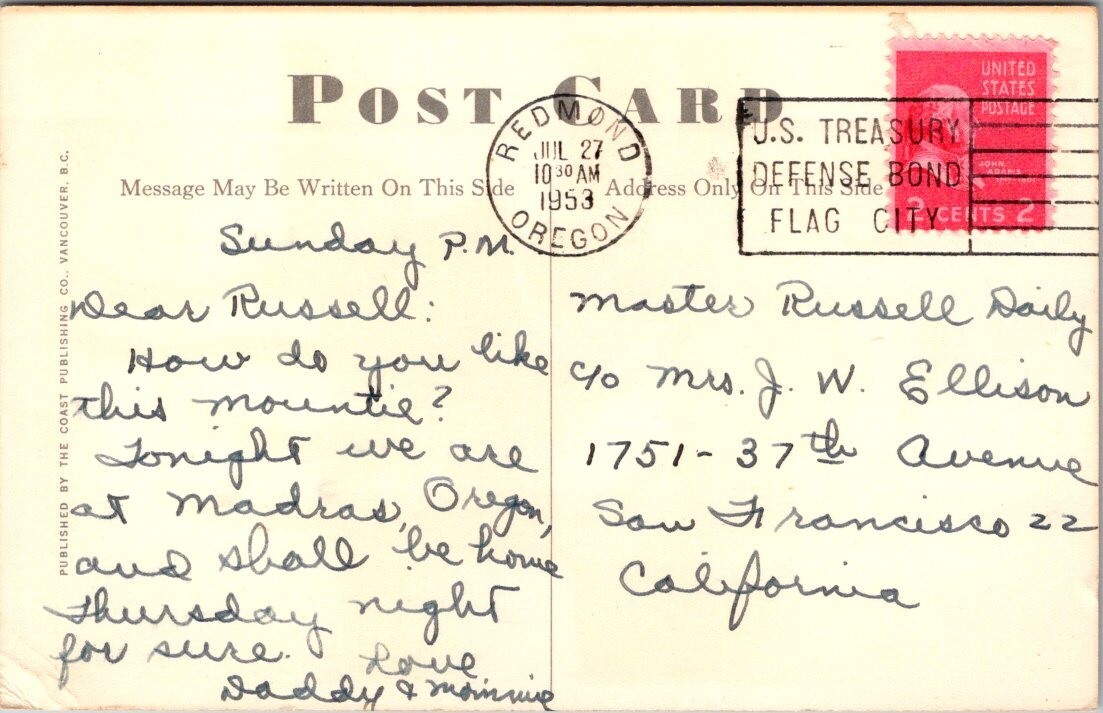 POST CARD
REDMOND
JUL 27
10 30 AM
1953
OREGON
U.S. TREASURY
DEFENSE BOND
FLAG CITY
UNITED
STATES
POSTAGE
JOHN
2 CENTS 2
Message May Be Written On This Side
Address Only On This Side
PUBLISHED BY THE COAST PUBLISHING CO., VANCOUVER, B.C.
Sunday P.M.
Dear Russell:
How do you like
this mountie?
Tonight we are
at Madras, Oregon,
and shall be home
Thursday night
for sure.
Love
Daddy & Mommie
Master Russell Daily
c/o Mrs. J. W. Ellison
1751-37th Avenue
San Francisco 22
California